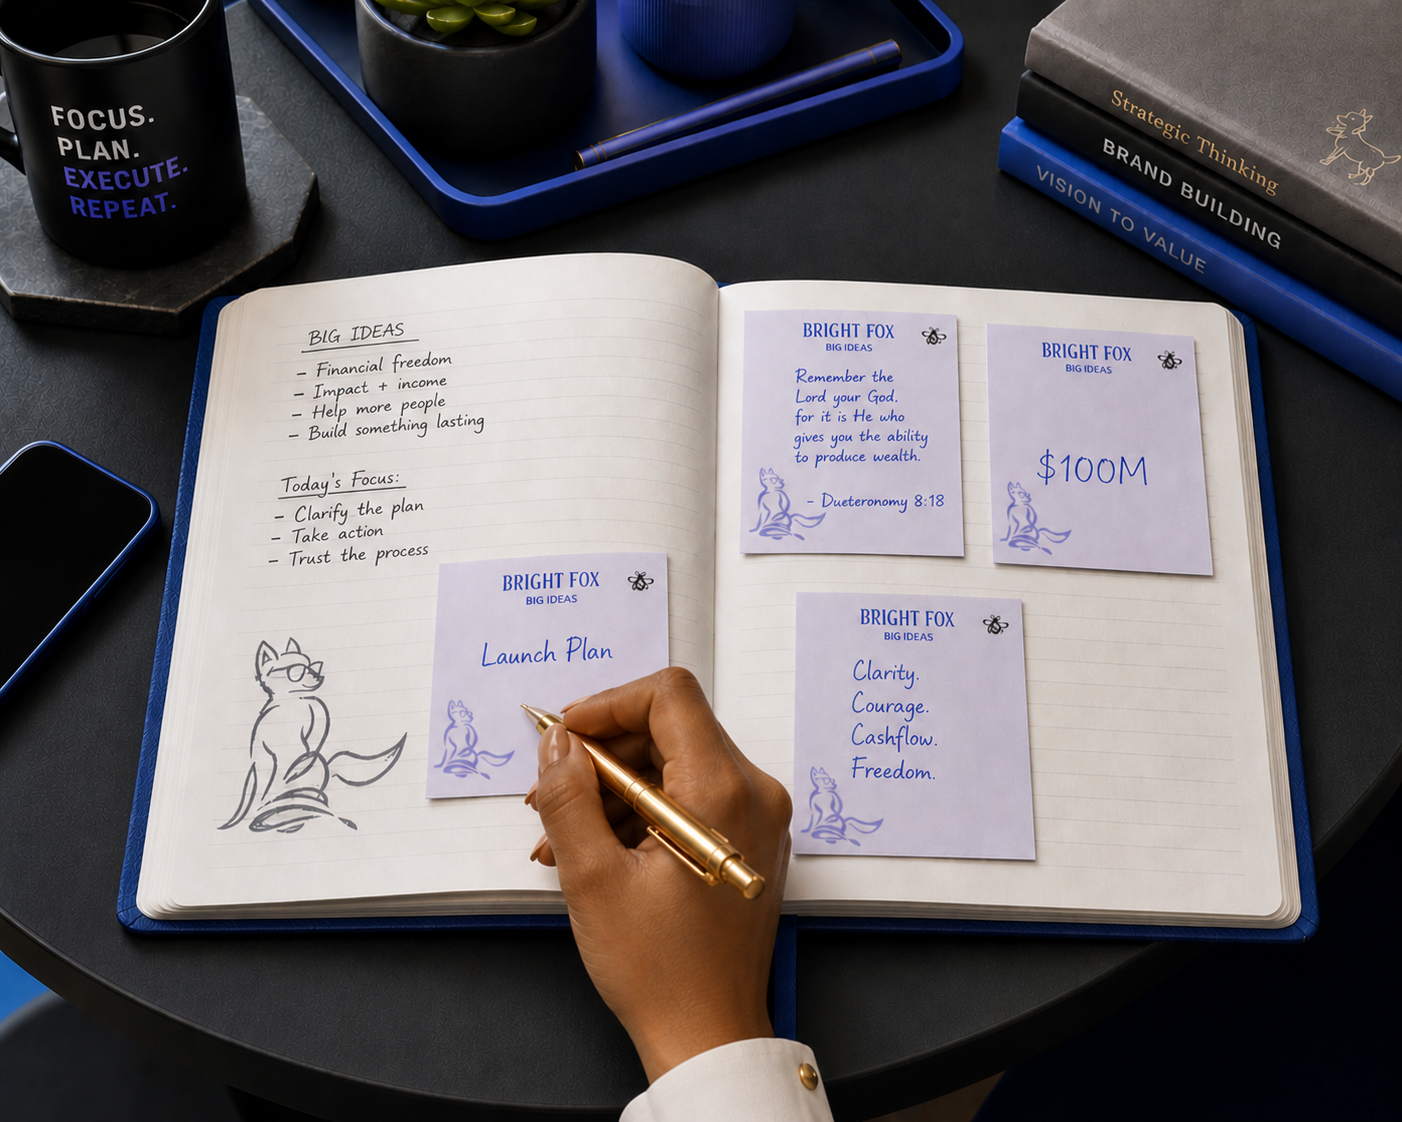 FOCUS.
PLAN.
EXECUTE.
REPEAT.
Strategic Thinking
BRAND BUILDING
VISION TO VALUE
BIG IDEAS
– Financial freedom
– Impact + income
– Help more people
– Build something lasting
Today's Focus:
– Clarify the plan
– Take action
– Trust the process
BRIGHT FOX
BIG IDEAS
Launch Plan
BRIGHT FOX
BIG IDEAS
Remember the
Lord your God,
for it is He who
gives you the ability
to produce wealth.
- Dueteronomy 8:18
BRIGHT FOX
BIG IDEAS
$100M
BRIGHT FOX
BIG IDEAS
Clarity.
Courage.
Cashflow.
Freedom.